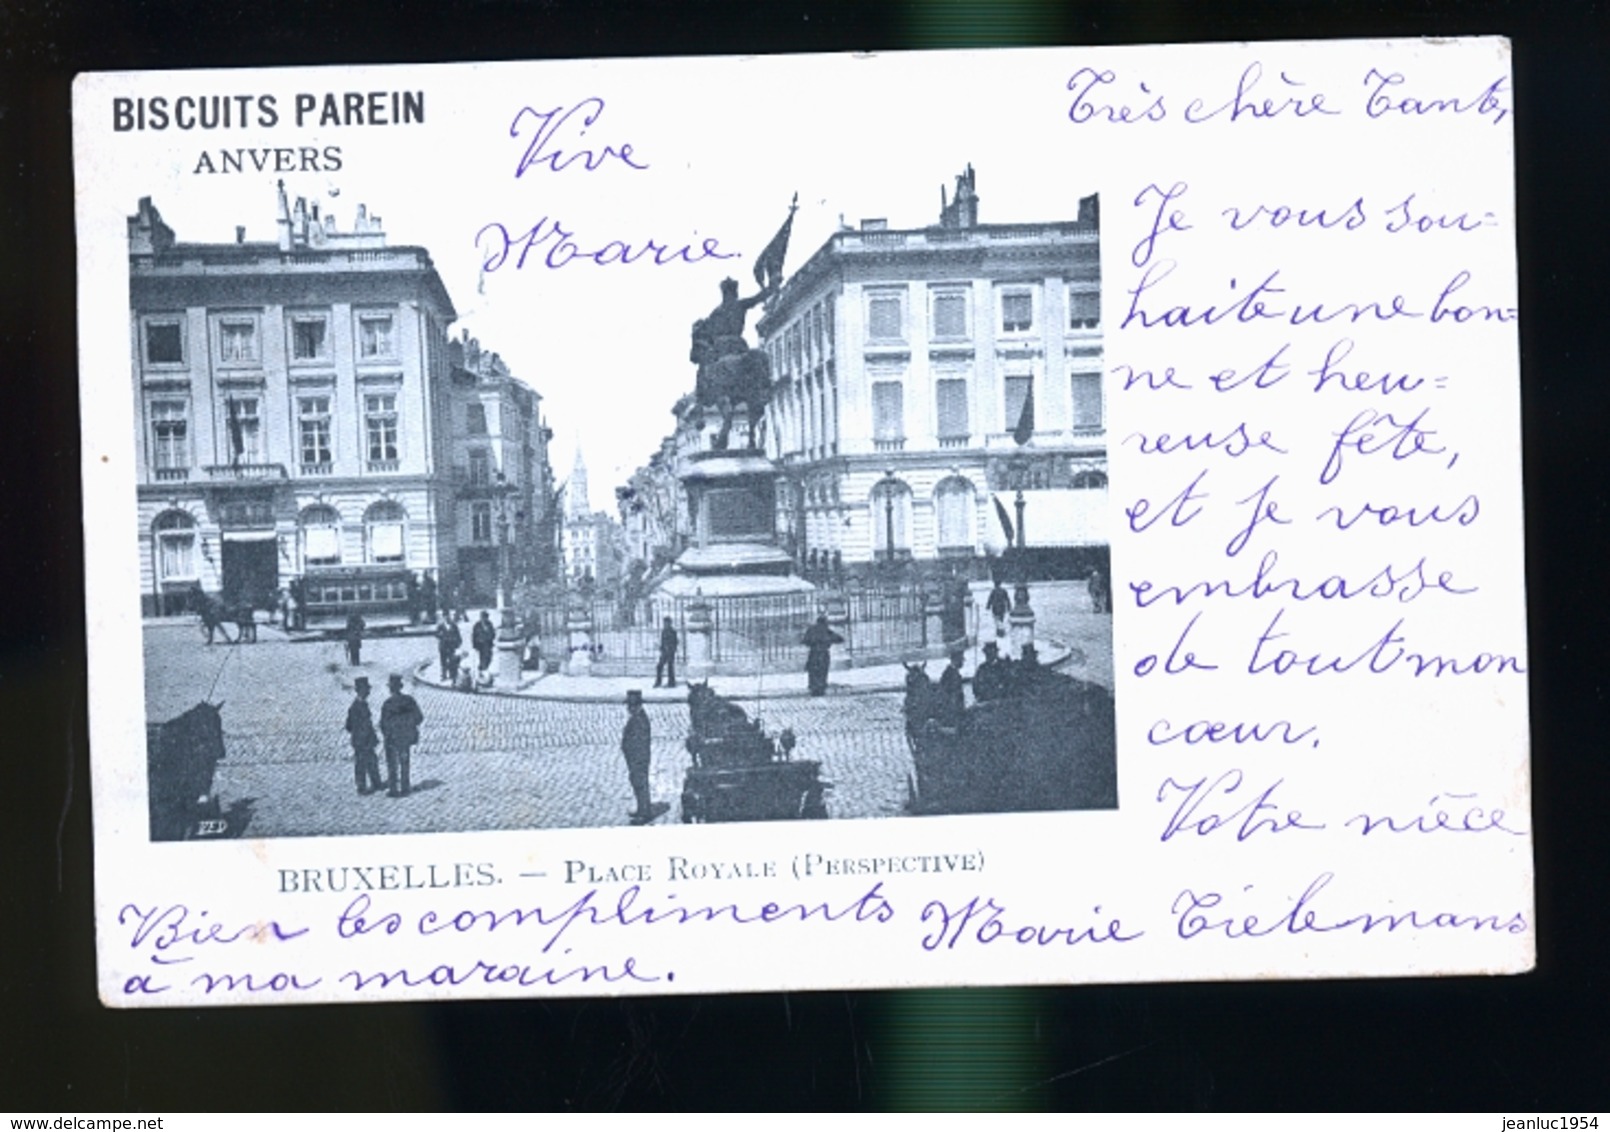 BISCUITS PAREIN
ANVERS
Vive
Marie.
Très chère Tante,
Je vous sou=
haite une bon=
ne et heu=
reuse fête,
et Je vous
embrasse
de tout mon
cœur.
Votre nièce
Marie Tielemans
VED
BRUXELLES. — PLACE ROYALE (PERSPECTIVE)
Bien les compliments
à ma maraine.
www.delcampe.net
jeanluc1954